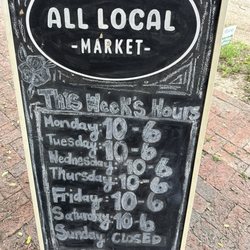 ALL LOCAL
-MARKET-
This Week's Hours
Monday: 10-6
Tuesday: 10-6
Wednesday: 10-6
Thursday: 10-6
Friday: 10-6
Saturday: 10-6
Sunday: CLOSED